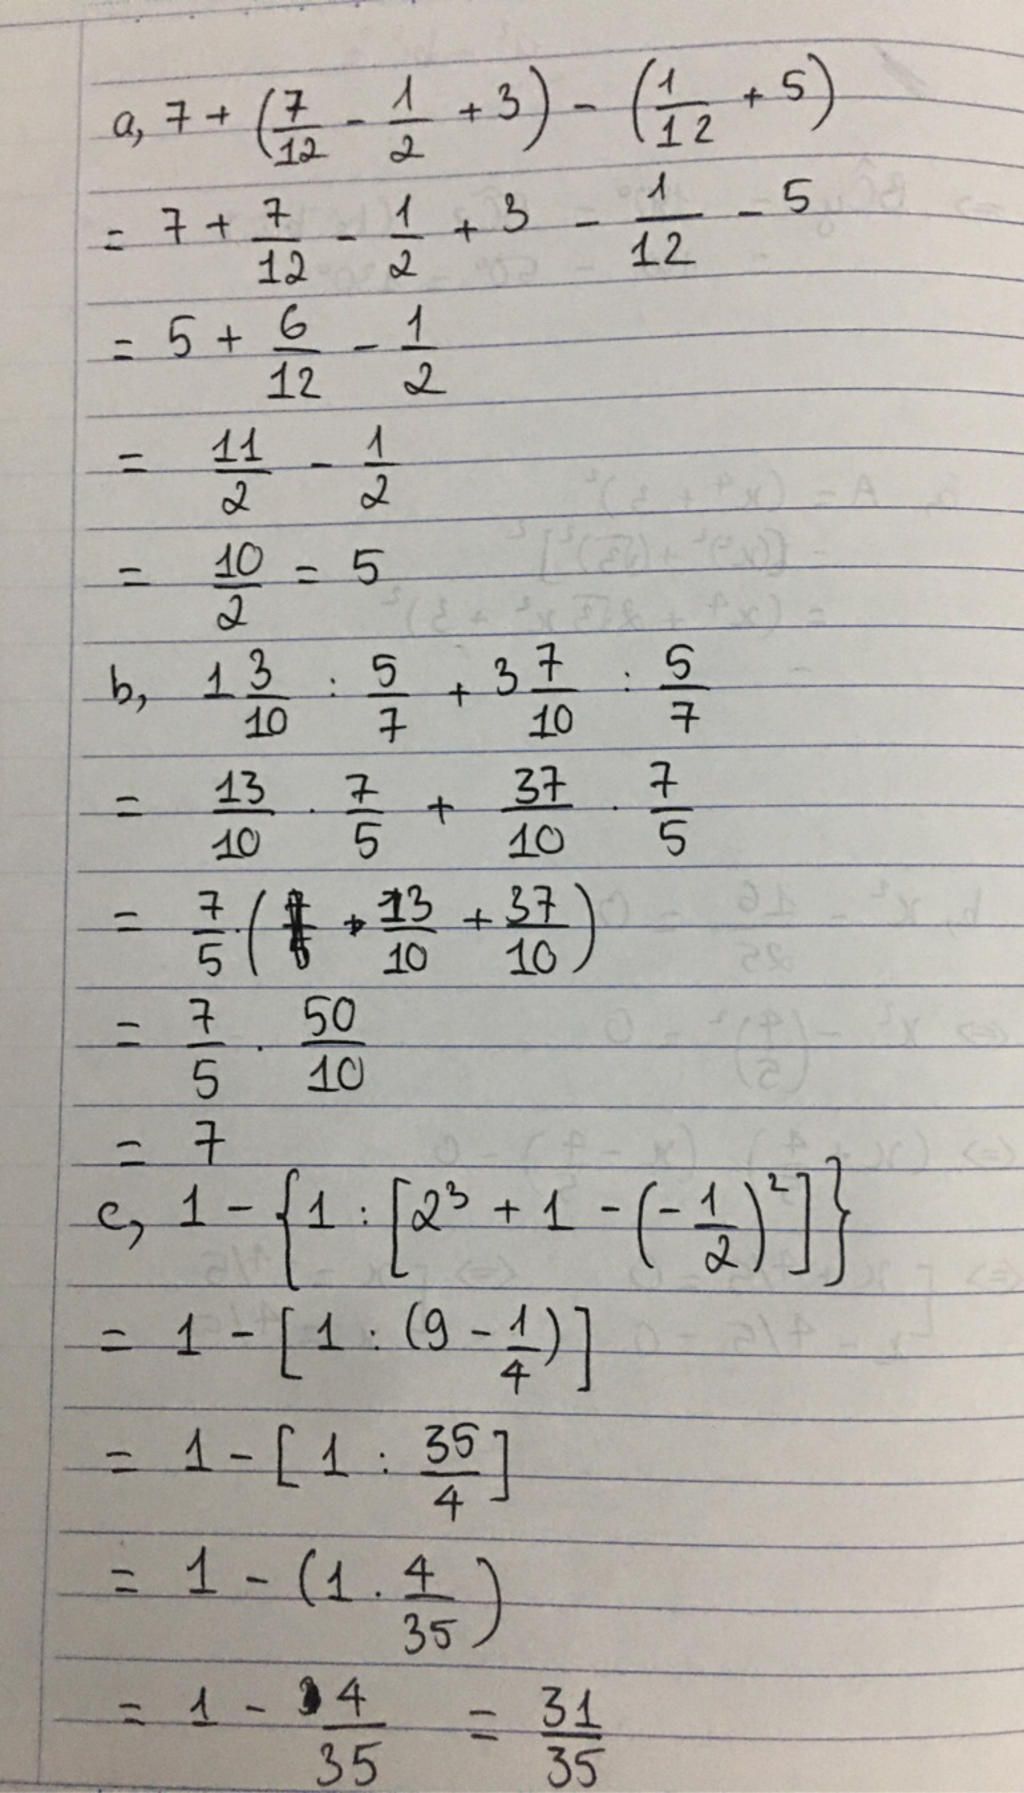 a, 7 + (7/12 - 1/2 + 3) - (1/12 + 5)
= 7 + 7/12 - 1/2 + 3 - 1/12 - 5
= 5 + 6/12 - 1/2
= 11/2 - 1/2
= 10/2 = 5
b, 1 3/10 : 5/7 + 3 7/10 : 5/7
= 13/10 . 7/5 + 37/10 . 7/5
= 7/5 . (13/10 + 37/10)
= 7/5 . 50/10
= 7
c, 1 - {1 : [2³ + 1 - (-1/2)²]}
= 1 - [1 : (9 - 1/4)]
= 1 - [1 : 35/4]
= 1 - (1 . 4/35)
= 1 - 4/35 = 31/35